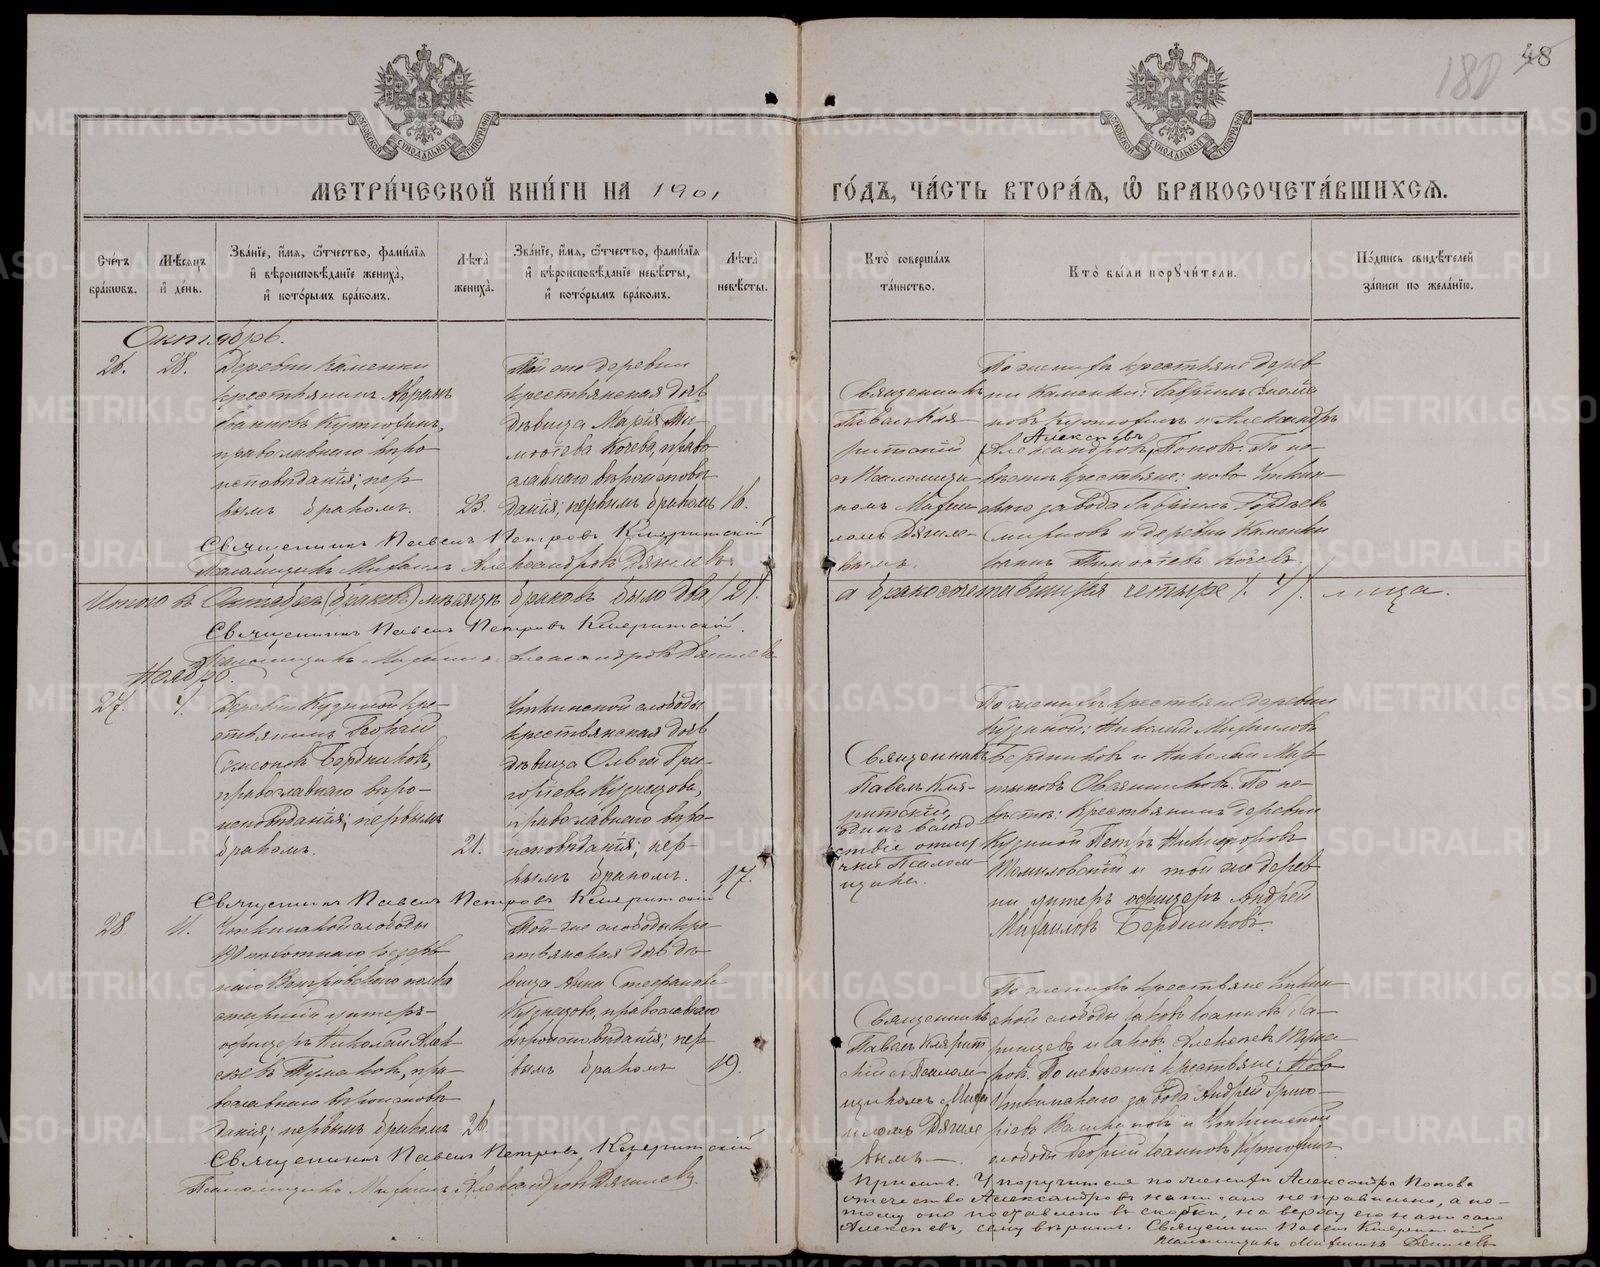 48
180
МЕТРИ́ЧЕСКОЙ КНИ́ГИ НА 1901
ГО́ДЪ, ЧА́СТЬ ВТОРА́Я, Ѿ БРАКОСОЧЕТА́ВШИХСЯ.
Сче́тъ бра́ковъ.
Мѣ́сяцъ и́ де́нь.
Зва́нїе, и́мя, ѻ҆́тчество, фами́лїя и҆ вѣроисповѣ́данїе жениха̀, и҆ кото́рымъ бра́комъ.
Лѣ́та жениха̀.
Зва́нїе, и́мя, ѻ҆́тчество, фами́лїя и҆ вѣроисповѣ́данїе невѣ́сты, и҆ кото́рымъ бра́комъ.
Лѣ́та невѣ́сты.
Кто̀ соверша́лъ та́инство.
Кто̀ бы́ли порꙋчи́тели.
По́дпись свидѣ́телей за́писи по жела́нїю.
Октябрь.
26.
28.
Деревни Каменки
крестьянинъ Аврамъ
Іоанновъ Кутюгинъ,
православнаго вѣро-
исповѣданія; пер-
вымъ бракомъ.
23.
Той же деревни
крестьянская дѣв
дѣвица Марія Ти-
моѳеева Кочева, право
славнаго вѣроисповѣ
данія; первымъ бракомъ
16.
Священникъ
Павелъ Кля-
ритскій
съ Псаломщи-
комъ Михаи-
ломъ Дягиле-
вымъ.
По женихѣ крестьяне дерев
ни Каменки: Гавріилъ
новъ Кутюгинъ и Александръ
Алексѣевъ
(Александровъ) Поповъ. По не-
вѣстѣ крестьяне: ново Уткин-
скаго завода Гавріилъ Гордѣевъ
Смирновъ и деревни Каменки
Тимоѳеевъ Кочевъ.
Священникъ Павелъ Петровъ Кляритскій
Псаломщикъ Михаилъ Александровъ Дягилевъ
Итого въ Октябрѣ (браковъ) мѣсяцѣ браковъ было два (2).
а бракосочетавшихся четыре (4) лица.
Священникъ Павелъ Петровъ Кляритскій.
Псаломщикъ Михаилъ Александровъ Дягилевъ
Ноябрь.
27.
4.
Деревни Кузиной кре-
стьянинъ Георгій
Симеоновъ Бердниковъ,
православнаго вѣро-
исповѣданія; первымъ
бракомъ.
21.
Уткинской слободы
крестьянская дѣв
дѣвица Ольга Гри-
горіева Кузнецова,
православнаго вѣро-
исповѣданія; пер-
вымъ бракомъ.
17.
Священникъ
Павелъ Кля-
ритскій,
одинъ вслѣд
ствіе отлу
чки Псалом-
щика.
По женихѣ крестьяне деревни
Кузиной: Николай Михаиловъ
Бердниковъ и Николай Мар-
тыновъ Овсянниковъ. По не-
вѣстѣ: Крестьянинъ деревни
Кузиной Петръ Никифоровъ
Томиловскій и той же дерев
ни унтеръ офицеръ Андрей
Михаиловъ Бердниковъ.
Священникъ Павелъ Петровъ Кляритскій
28.
11.
Уткинской слободы
пѣхотнаго резерв
наго Венгровскаго полка
старшій унтеръ-
офицеръ Николай Алек-
сѣевъ Тумаковъ, пра-
вославнаго вѣроисповѣ
данія; первымъ бракомъ
26.
Той-же слободы кре-
стьянская дѣв дѣ-
вица Анна Стефанова
Кузнецова, православнаго
вѣроисповѣданія; пер-
вымъ бракомъ
19.
Священникъ
Павелъ Клярит
скій съ Псалом-
щикомъ Миха
иломъ Дягиле
вымъ.
По женихѣ крестьяне Уткин-
ской слободы Іаковъ Іоанновъ
и Іаковъ Алексѣевъ Тума-
ковъ. По невѣстѣ крестьяне: Ново
Уткинскаго завода Андрей Григо-
ріевъ и Уткинской
слободы Георгій Іоанновъ Кутюгинъ.
Священникъ Павелъ Петровъ Кляритскій
Псаломщикъ Михаилъ Александровъ Дягилевъ.
Примѣч. У поручителя по женихѣ Александра Попова
отечество Александровъ написано неправильно, а по-
тому оно поставлено въ скобки, на верху его написано
Алексѣевъ, сему вѣрить. Священникъ Павелъ Кляритскій
Псаломщикъ Михаилъ Дягилевъ